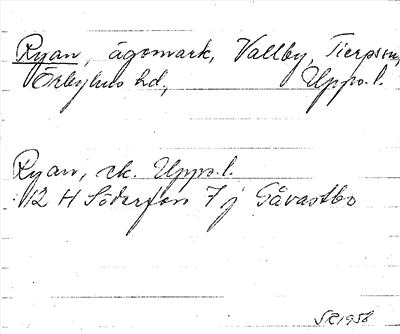 Ryan, ägomark, Vallby, Tierps sn,
Örbyhus hd, Upps. l.
Ryan, ek. Upps. l.
12 H Söderfors 7 j Gåvastbo
SR 1958